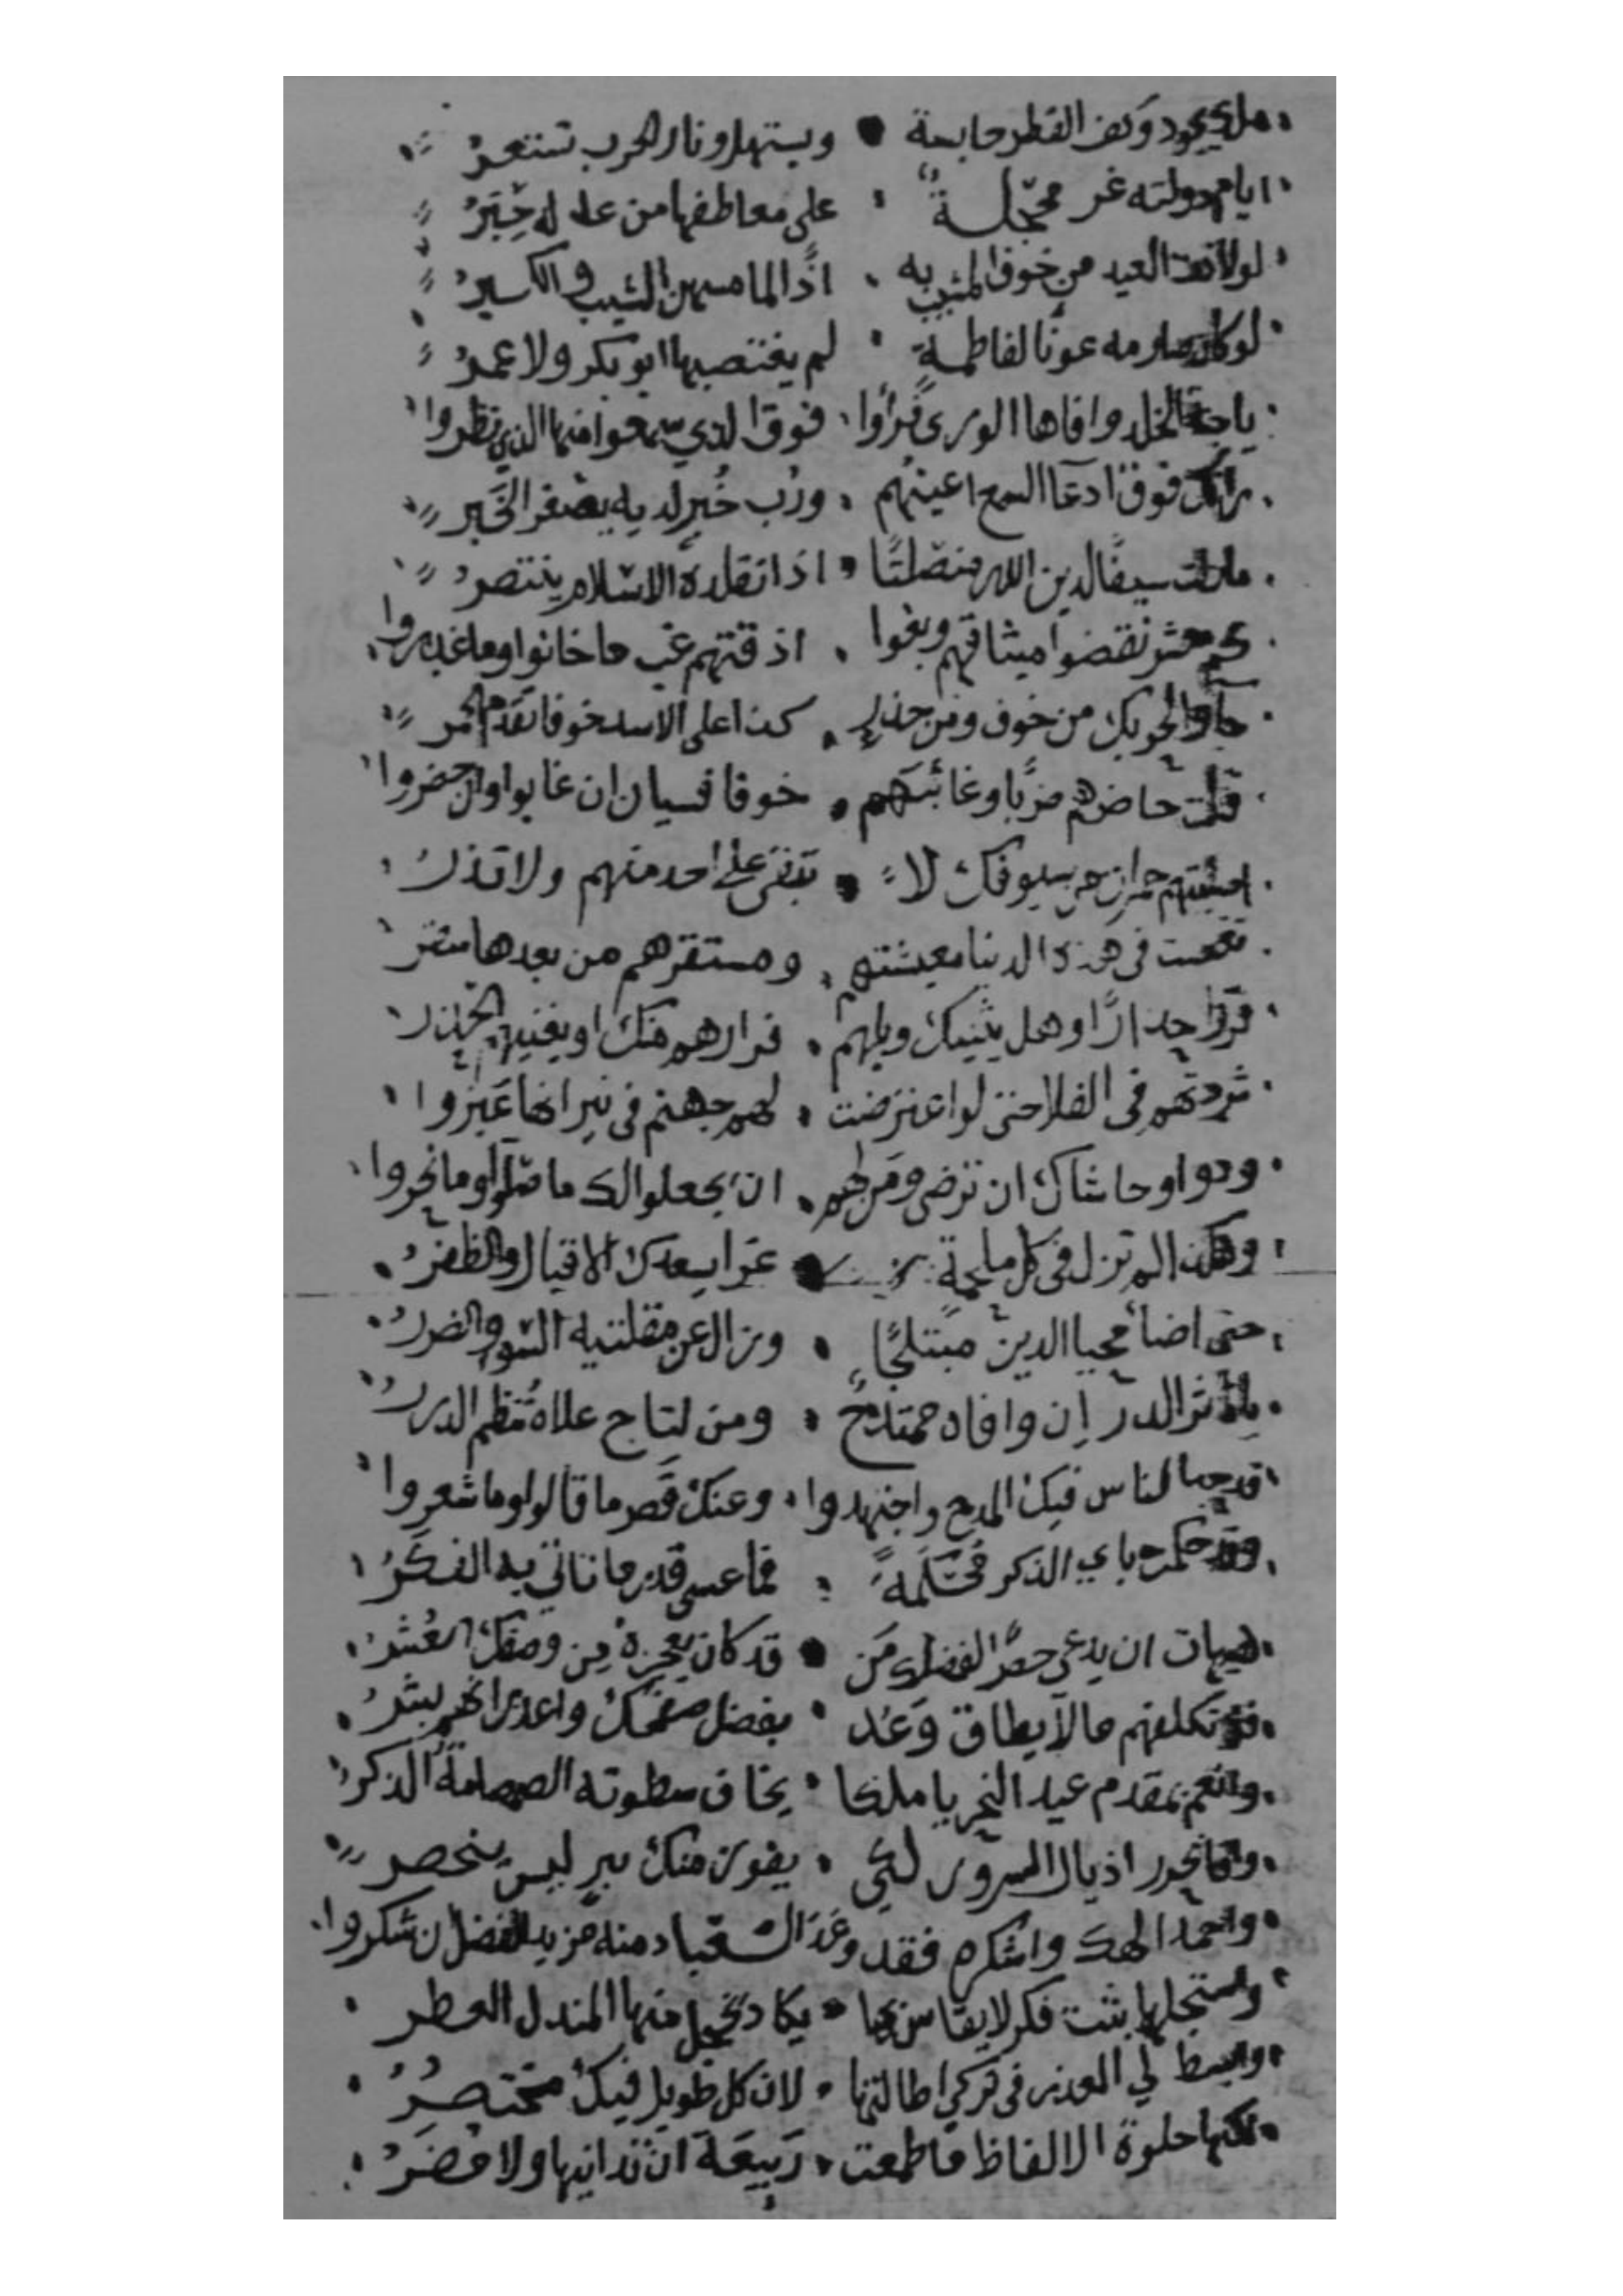 ملك يجود وكف القطر جابحة ويستهل ونار الحرب تستعرُ
ايام دولته غر محجّلةٌ على معاطفها من عدله حِبَرُ
لولا العيد من خوف المشيب به اذًا لما مسهن الشيب والكبرُ
لو كان صارمه عونًا لفاطمةٍ لم يغتصبها ابو بكر ولا عمرُ
يا جنة الخلد وافاها الورى فرأوا فوق الذي سمعوا منها الذي نظروا
راتك فوق ادعا السمع اعينهم ورُب خُبرٍ لديه يصغر الخَبر
ما زلت سيفًا لدين الله منصلتًا اذا تقلدهُ الاسلام ينتصرُ
كم معشر نقضوا ميثاقهم وبغوا اذقتهم غب ما خانوا وما غدروا
من خوف ومن حذر كذا على الاسد خوفا تقدم الحمر
قتلت حاضرهم ضربًا وغائبَهم خوفا فسيان ان غابوا وان حضروا
سيوفك لا تبقى على احد منهم ولا تذرُ
في هذه الدنيا معيشتهم ومستقرهم من بعدها سقر
فروا حذارًا وهل يثنيك ويلهم فرارهم منك او يغنيهم الحذر
شردتهم في الفلا حتى لو اعترضت لهم جهنم في نيرانها عَبَروا
ودوا وحاشاك ان ترضى ومن لهم ان يجعلوا لك ما صلوا وما نحروا
وهكذا لم تزل في كل ملحمة عزا بسعدك الاقبال والظفرُ
حتى اضأ محيا الدين مبتلجًا وزال عن مقلتيه السوء والضررُ
يا ناثر الدر اِن وافاه ممتدحٌ ومن لتاج علاه تُنظم الدررُ
قد الناس فيك المدح واجتهدوا وعنك قَصر ما قالوا وما شعروا
باي الذكر مُحْكَمةً فما عسى قدر ما تاتي به الفكَرُ
هيهات ان يدعى حصرًا لفضلك مَن قد كان يعجزه مِن وصفك العُشرُ
تكلفهم ما لا يطاق وَعُد بفضل صفحك واعذر انهم بشرُ
وانعم بمقدم عيد النحر يا ملكا يخاف سطوته الصمصامة الذكرُ
وانحر اذيال السرور لكي يفوز منك ببرٍ ليس ينحصر
واحمد الهك واشكره فقد وعَدَ العباد منه مزيد الفضل ان شكروا
واستجلها بنت فكر لا يقاس بها يكاد يخجل منها المندل العطر
وابسط لي العذر في تركي اطالتها لان كل طويل فيك مختصَرُ
لكنها حلوة الالفاظ ما طمعت رَبيعَة ان تدانيها ولا مُضَرُ